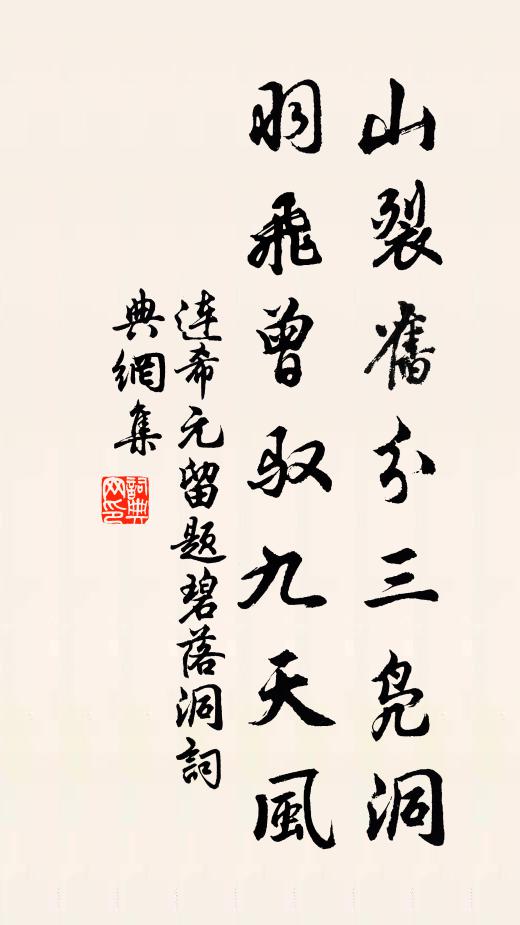 山裂舊分三凫洞
羽飛曾馭九天風
連希元留題碧落洞詞
典網集
詞典網印